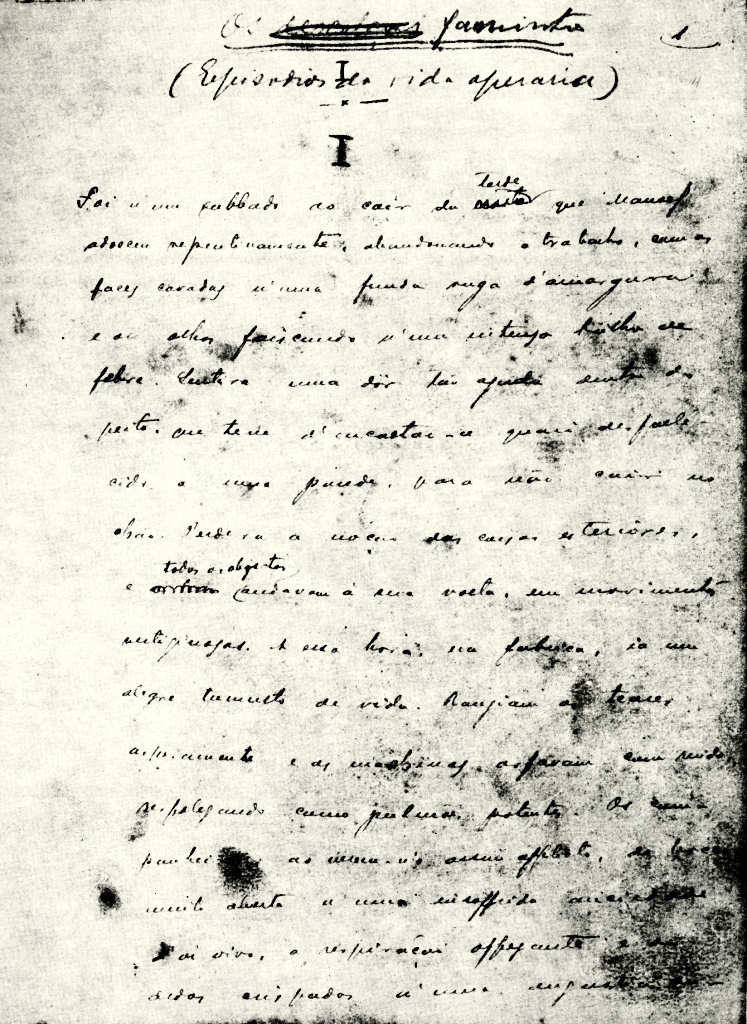 Os famintos
1
(Episodios da vida operaria)
I
I
tarde
Foi n'um sabbado ao cair da que Manoel
adoeceu repentinamente, abandonando o trabalho, com as
faces cavadas n'uma funda ruga d'amargura
e os olhos faiscando n'um intenso brilho de
febre. Sentira uma dôr tão aguda dentro do
peito, que teve d'encostar-se quasi desfalle-
cido a uma parede, para não cair no
chão. Perdera a noção das coisas exteriores,
todos os objectos
e andavam á sua volta, em movimentos
vertiginosos. A essa hora, na fabrica, ia um
alegre tumulto de vida. Rangiam os teares
asperamente e as machinas arfavam com ruido,
resfolegando como pulmões potentes. Os com-
panheiros ao verem-n'o assim afflicto, de bocca
muito aberta n'uma insoffrida anciedade
, a respiração offegante e os
dedos crispados n'uma